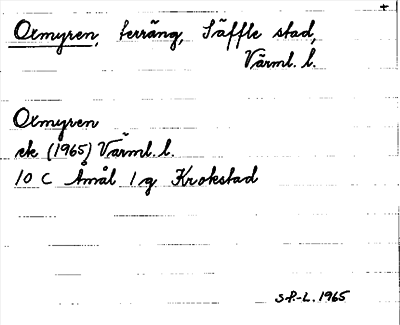 +
Oxmyren, terräng, Säffle stad,
Värml. l.
Oxmyren
ek (1965) Värml. l.
10 C Åmål 1 g Krokstad
S P.-L. 1965